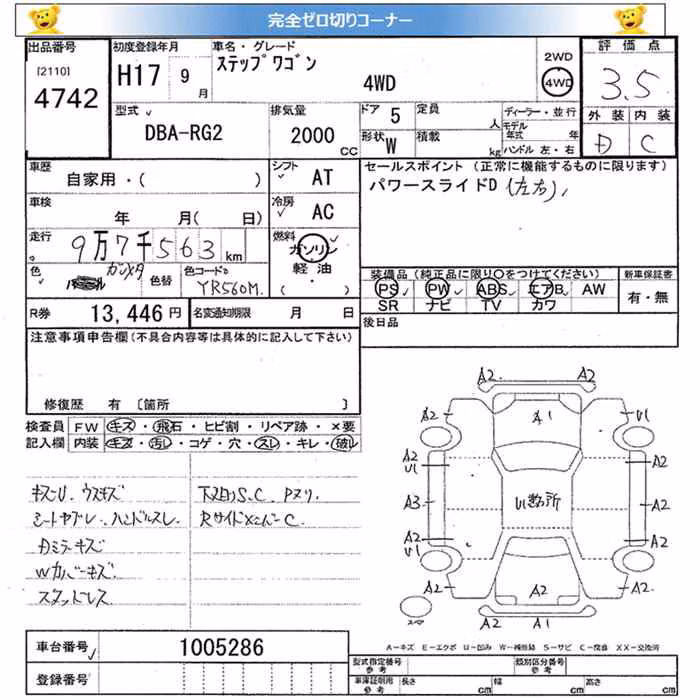 完全ゼロ切りコーナー
出品番号 初度登録年月 車名・グレード 評価点
[2110] 4742 H17 9月 ステップワゴン 4WD 2WD 4WD 3.5
型式 排気量 ドア 5 定員 人 ディーラー・並行 外装 内装
DBA-RG2 2000CC 形状 W 積載 kg モデル年式 年 D C
ハンドル 左・右
車歴 シフト セールスポイント (正常に機能するものに限ります)
自家用・( ) AT パワースライドD (左右)
車検 冷房
年 月( 日) AC
走行 燃料
9万7千563km ガソリン
軽油
( )
色 ガンメタ 色替 色コードo YR560M
装備品(純正品に限り○をつけてください) 新車保証書
PS PW ABS エアB AW 有・無
SR ナビ TV カワ
R券 13,446円 名変通知期限 月 日 後日品
注意事項申告欄(不具合内容等は具体的に記入して下さい)
修復歴 有 〔箇所 〕
検査員 FW キズ・飛石・ヒビ割・リペア跡・×要
記入欄 内装 キズ・汚レ・コゲ・穴・スレ・キレ・破レ
キズU. ウスキズ 下廻りS.C
シートヤブレ. ハンドルスレ RサイドメンバーC
Dミラーキズ
Wカバーキズ
スタッドレス
A2 A2
A2 A1 U1
A2 U1 A2
A3 U1数ヶ所 A2
A2 U1 A2
A2 A2 A2
スペア A2 A1
A−キズ E−エクボ U−凹み W−補修跡 S−サビ C−腐食 XX−交換済
車台番号 1005286
登録番号
型式指定番号 参考 類別区分番号 参考
車庫証明用 参考 長さ cm 幅 cm 高さ cm